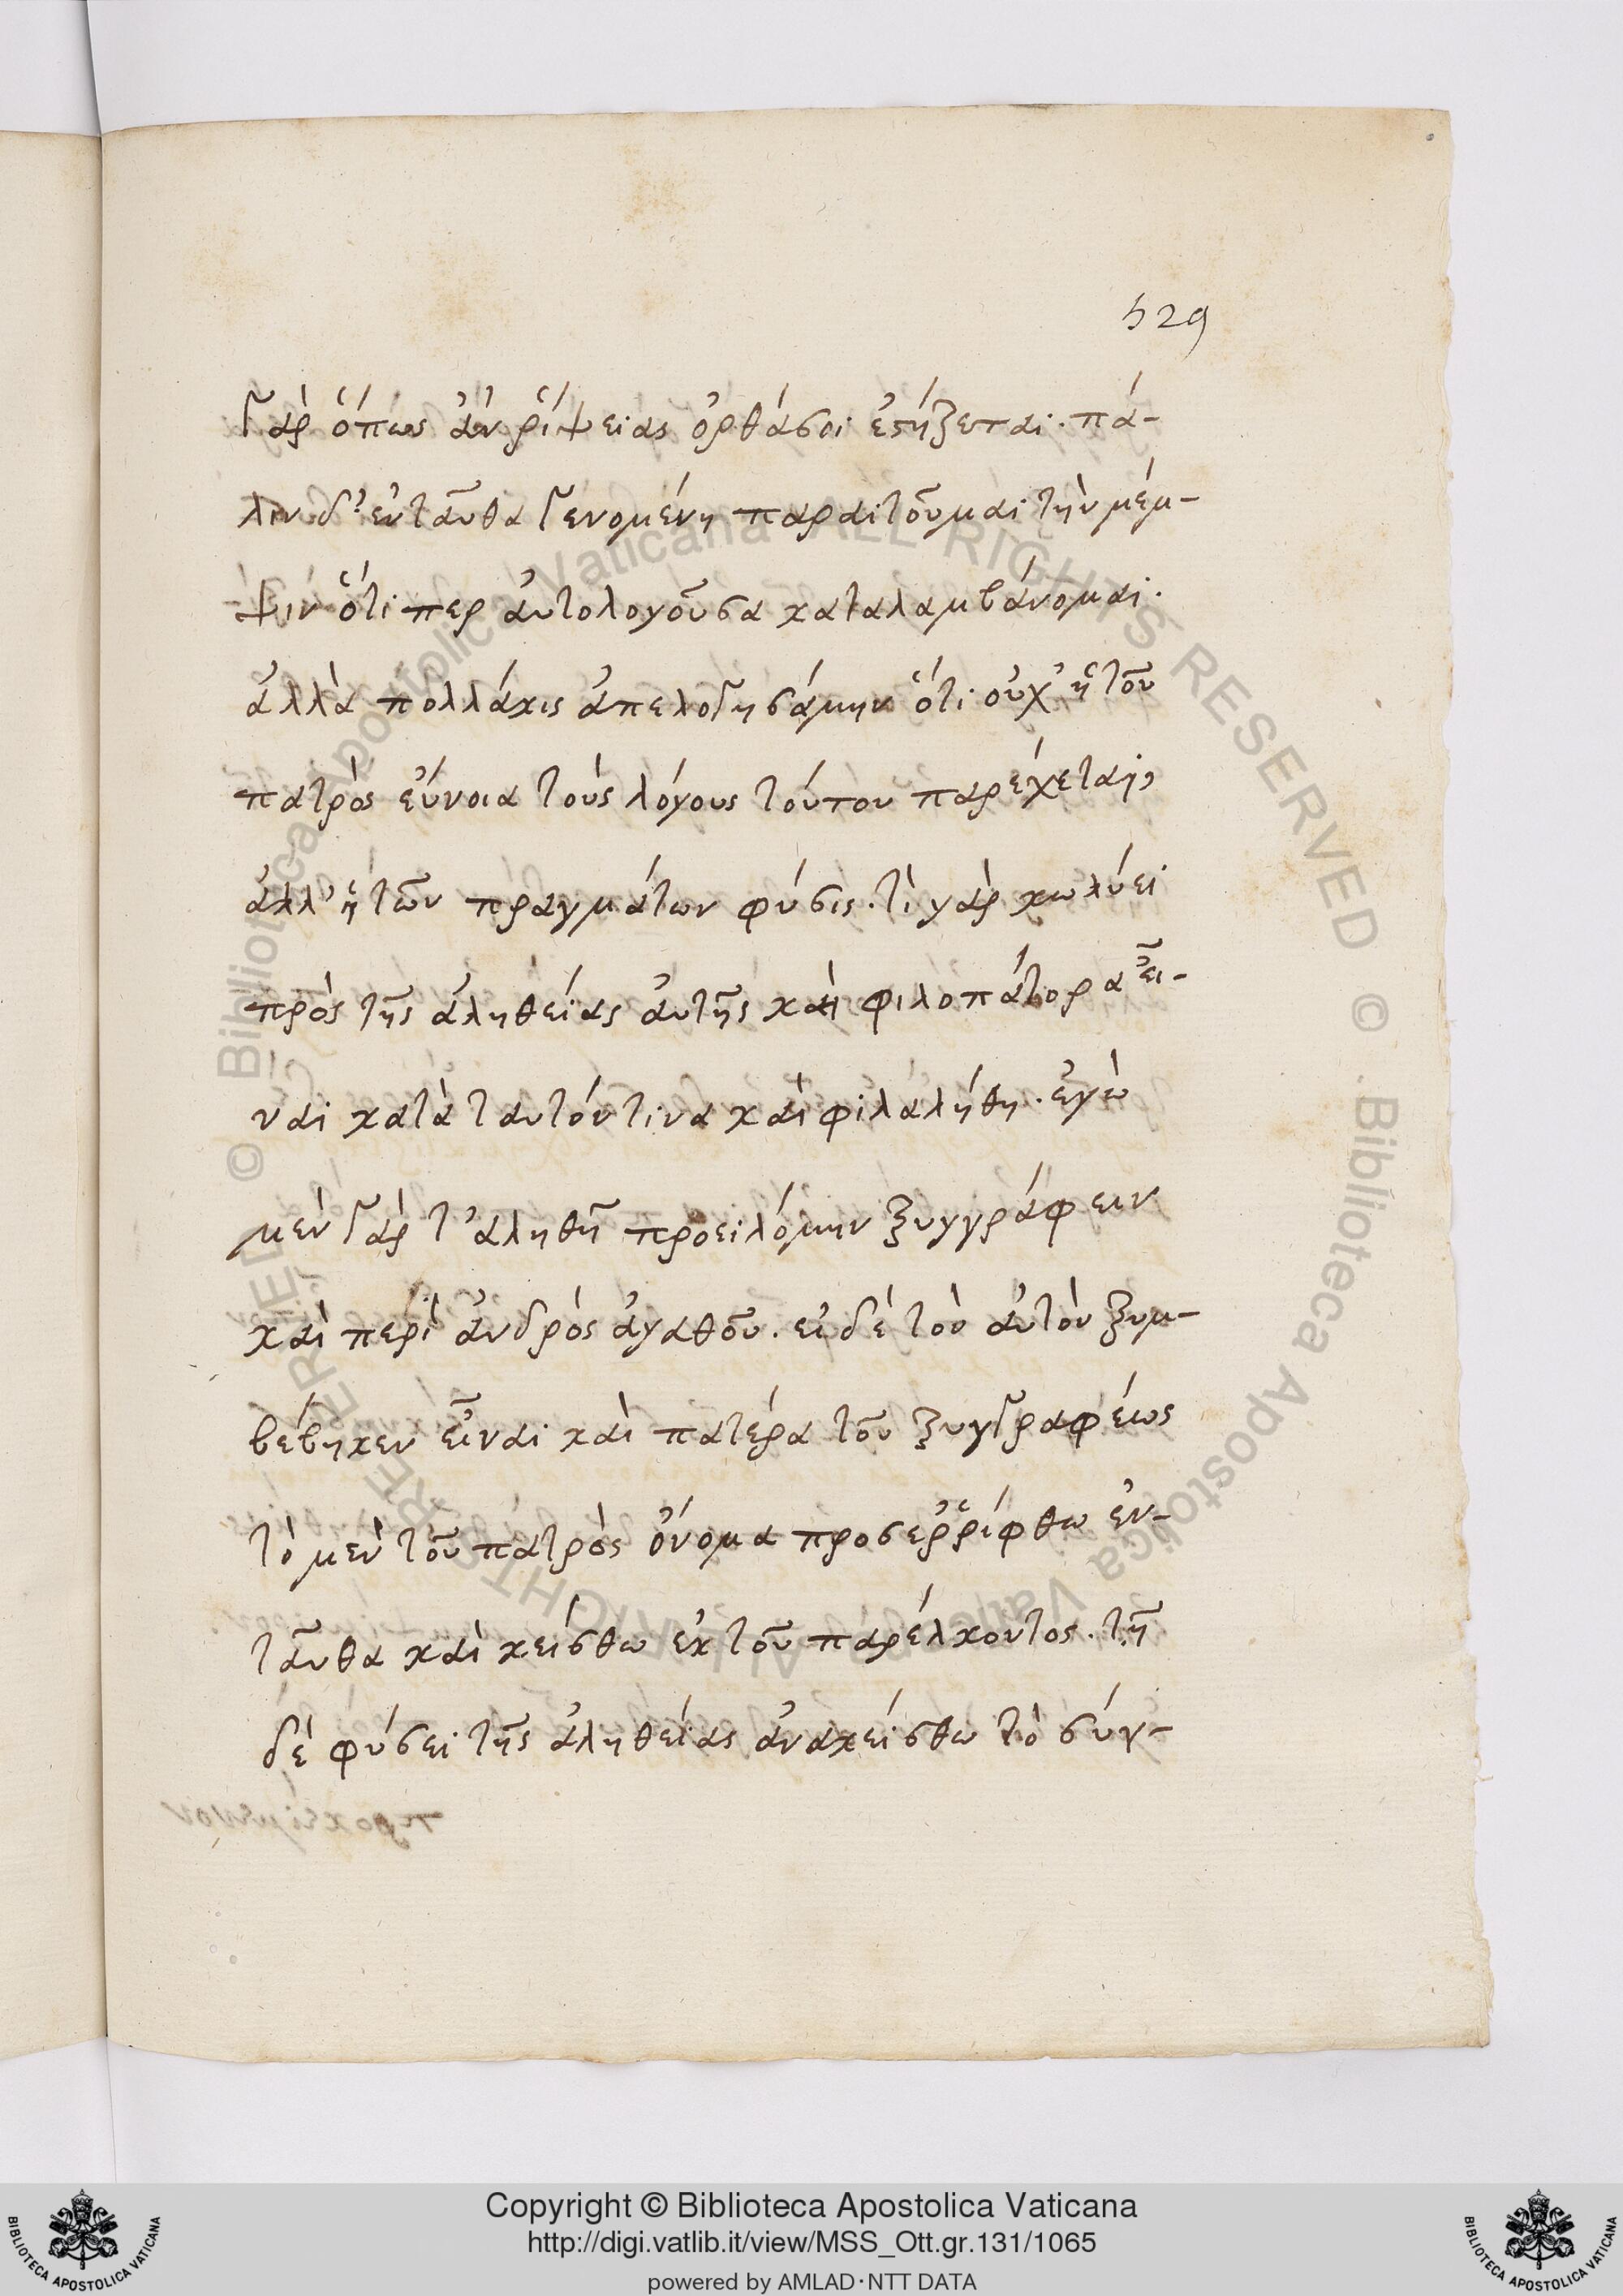 529
γὰρ ὅπως ἂν ῥίψειας ὀρθάσοι ἐστήξεται. πά-
λιν δ' ἐνταῦθα γενομένη παραιτοῦμαι τὴν μέμ-
ψιν ὅτι περ ἀυτολογοῦσα καταλαμβάνομαι.
ἀλλὰ πολλάκις ἀπελογησάμην ὅτι οὐχ' ἡ τοῦ
πατρὸς εὔνοια τοὺς λόγους τούτου παρέχεται,
ἀλλ' ἡ τῶν πραγμάτων φύσις. τί γὰρ κωλύει
πρὸς τῆς ἀληθείας ἀυτῆς καὶ φιλοπάτορα εἶ-
ναι κατὰ ταυτόν τινα καὶ φιλαλήθη. ἐγὼ
μὲν γὰρ τ' ἀληθῆ προειλόμην ξυγγράφειν
καὶ περὶ ἀνδρὸς ἀγαθοῦ. εἰ δὲ τὸν ἀυτὸν ξυμ-
βέβηκεν εἶναι καὶ πατέρα τοῦ ξυγγραφέως
τὸ μὲν τοῦ πατρὸς ὄνομα προσεῤῥίφθω ἐν-
ταῦθα καὶ κείσθω ἐκ τοῦ παρέλκοντος. τῇ
δὲ φύσει τῆς ἀληθείας ἀνακείσθω τὸ σύγ-
Copyright © Biblioteca Apostolica Vaticana
http://digi.vatlib.it/view/MSS_Ott.gr.131/1065
powered by AMLAD·NTT DATA
BIBLIOTECA APOSTOLICA VATICANA
BIBLIOTECA APOSTOLICA VATICANA
© Biblioteca Apostolica Vaticana ALL RIGHTS RESERVED
© Biblioteca Apostolica Vaticana ALL RIGHTS RESERVED